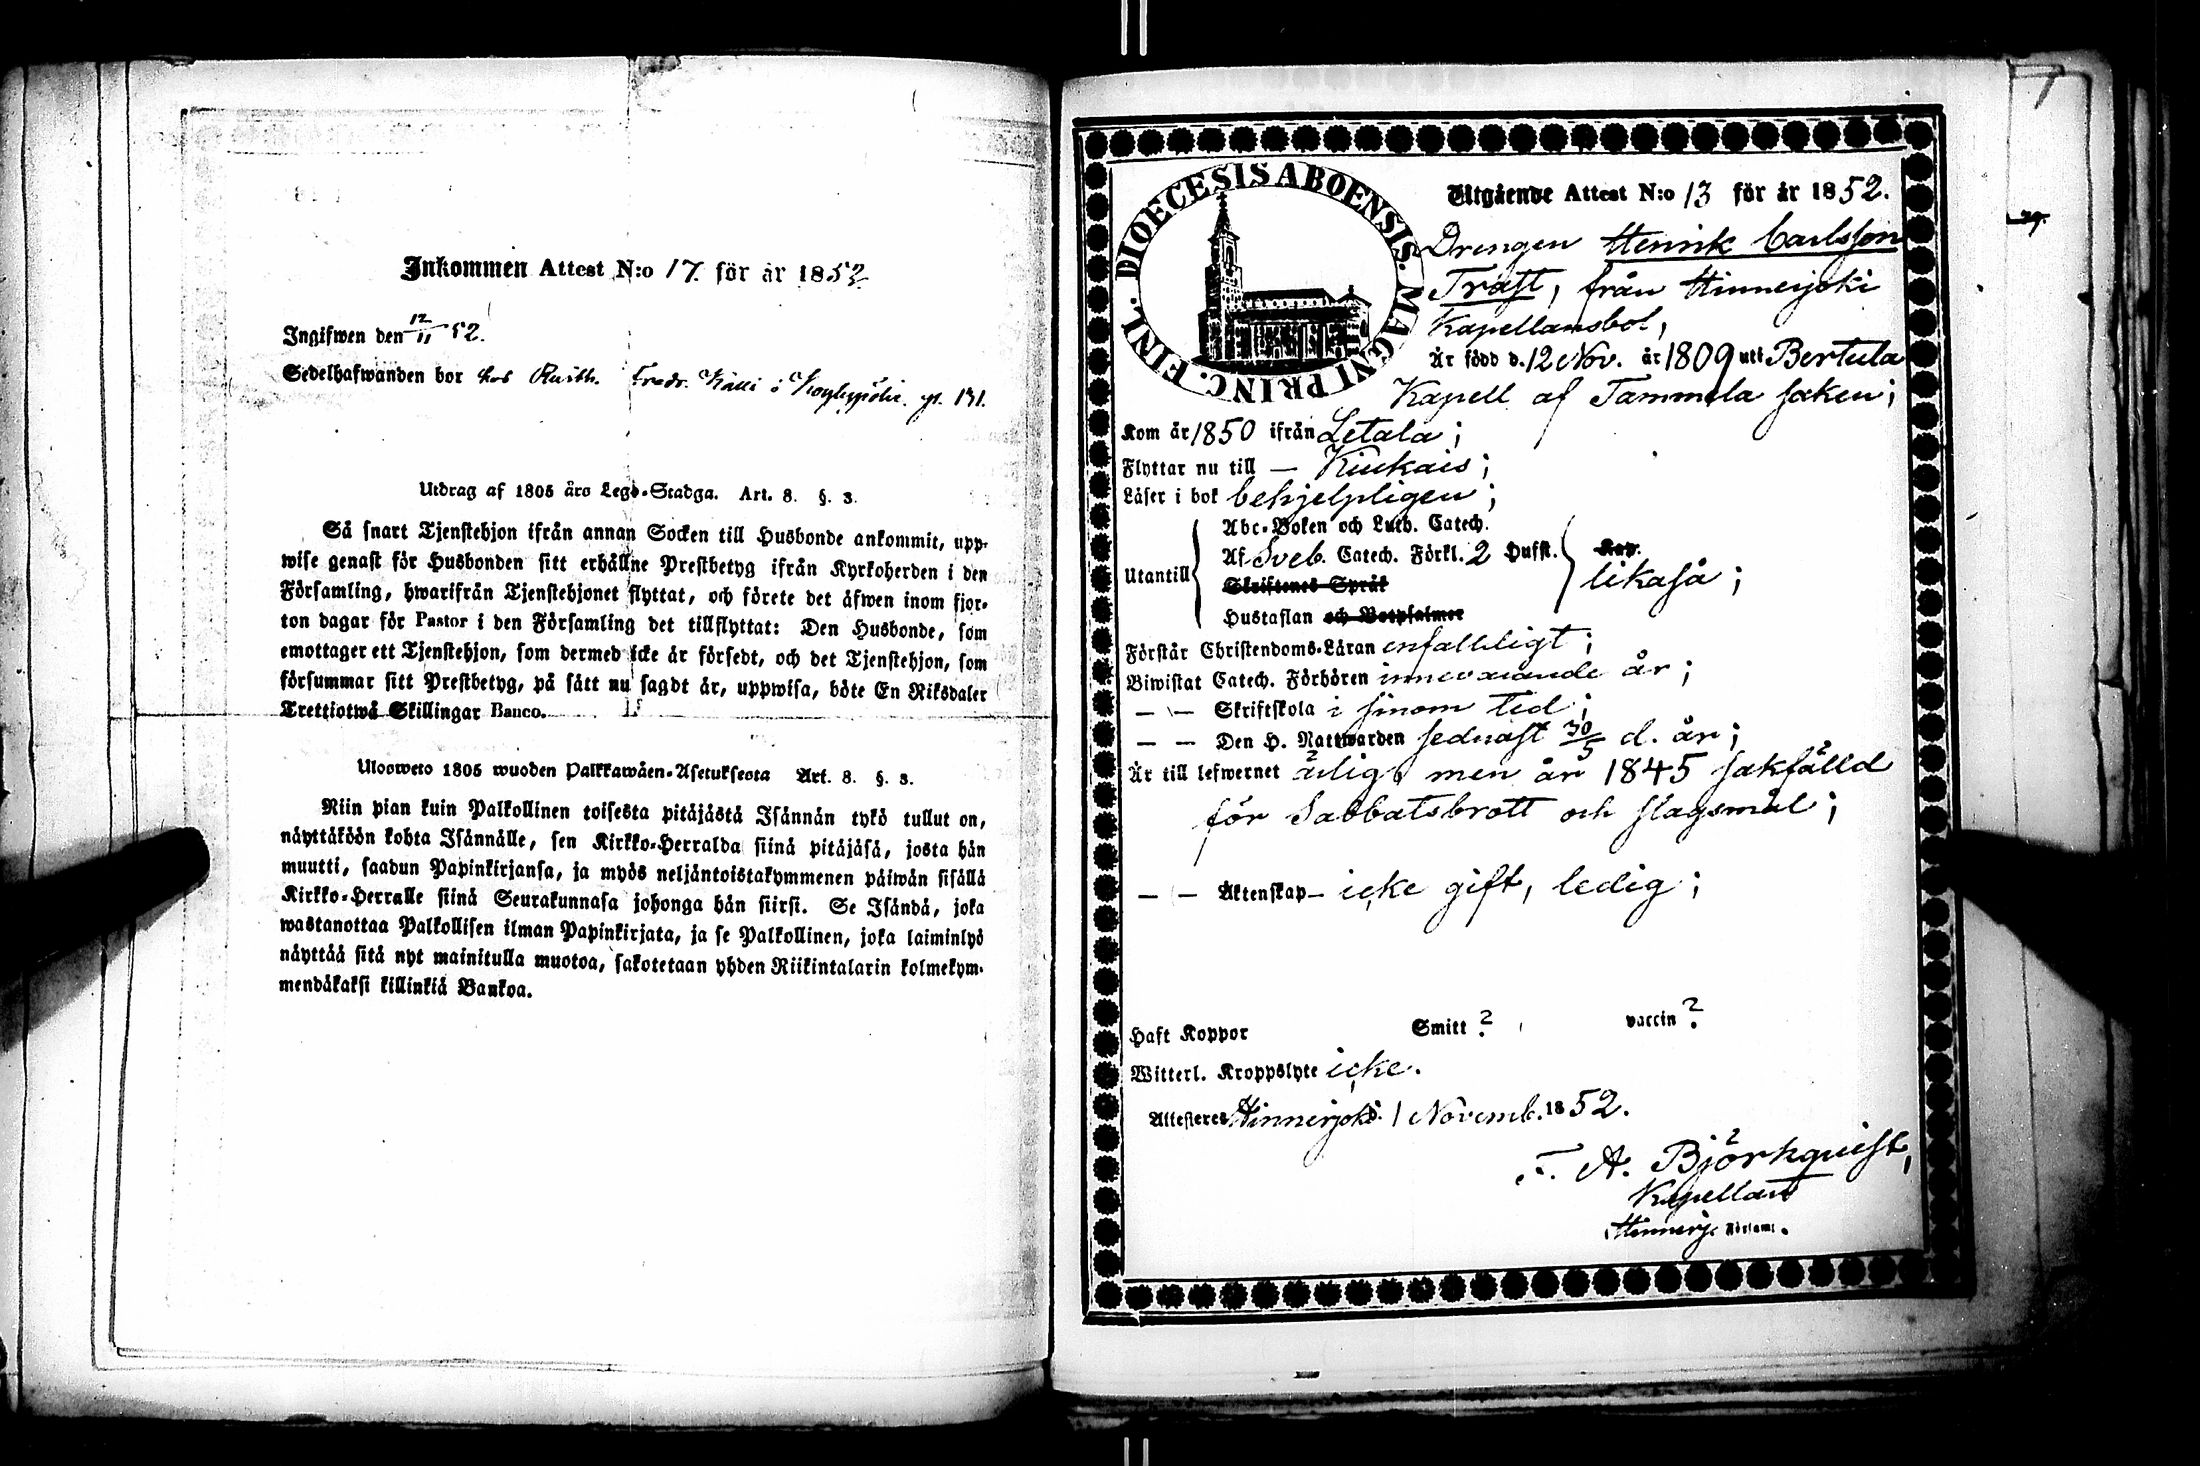 Inkommen Attest N:o 17. för år 1852.
Ingifwen den 12/11 52.
Sedelhafwanden bor hos Rusth. Fredr. i p. 131.
Utdrag af 1805 års Lego-Stadga. Art. 8. §. 3.
Så snart Tjenstehjon ifrån annan Socken till Husbonde ankommit, upp-
wise genast för Husbonden sitt erhållne Prestbetyg ifrån Kyrkoherden i den
Församling, hwarifrån Tjenstehjonet flyttat, och förete det äfwen inom fjor-
ton dagar för Pastor i den Församling det tillflyttat: Den Husbonde, som
emottager ett Tjenstehjon, som dermed icke är försedt, och det Tjenstehjon, som
försummar sitt Prestbetyg, på sätt nu sagdt är, uppwisa, böte En Riksdaler
Trettiotwå Skillingar Banco.
Ulosweto 1805 wuoden Palkkawäen-Asetuksesta Art. 8. §. 3.
Niin pian kuin Palkollinen toisesta pitäjästä Isännän tykö tullut on,
näyttäköön kohta Isännälle, sen Kirkko-Herralda siinä pitäjäsä, josta hän
muutti, saadun Papinkirjansa, ja myös neljäntoistakymmenen päiwän sisällä
Kirkko-Herralle siinä Seurakunnasa johonga hän siirsi. Se Isändä, joka
wastanottaa Palkollisen ilman Papinkirjata, ja se Palkollinen, joka laiminlyö
näyttää sitä nyt mainitulla muotoa, sakotetaan yhden Riikintalarin kolmekym-
mendäkaksi killinkiä Bankoa.
DIOECESIS ABOENSIS. MAGNI PRINC. FINL.
Utgående Attest N:o 13 för år 1852.
Drengen Henrik Carlsson
Trast, från Hinnerjoki
Kapellansbol,
Är född d. 12 Nov. år 1809 uti Bertula
Kapell af Tammela socken;
Kom år 1850 ifrån Letala;
Flyttar nu till — Kiukais;
Läser i bok behjelpligen;
Abc-Boken och Luth. Catech.
Utantill Af Sveb. Catech. Förkl. 2 Hufst. Kap. likaså;
Skriftenes Språk
Hustaflan och Botpsalmer
Förstår Christendoms-Läran enfaldigt;
Biwistat Catech. Förhören innevarande år;
— — Skriftskola i sinom tid;
— — Den H. Nattwarden sednast 30/5 d. år;
Är till lefwernet ärlig, men år 1845 sakfälld
för Sabbatsbrott och slagsmål;
— — Äktenskap — icke gift, ledig;
Haft Koppor Smitt ? vaccin ?
Witterl. Kroppslyte icke.
Attesteres Hinnerjoki d. 1 Novemb. 1852.
F. A. Björkquist,
Kapellan
Hinnerj. Församl.